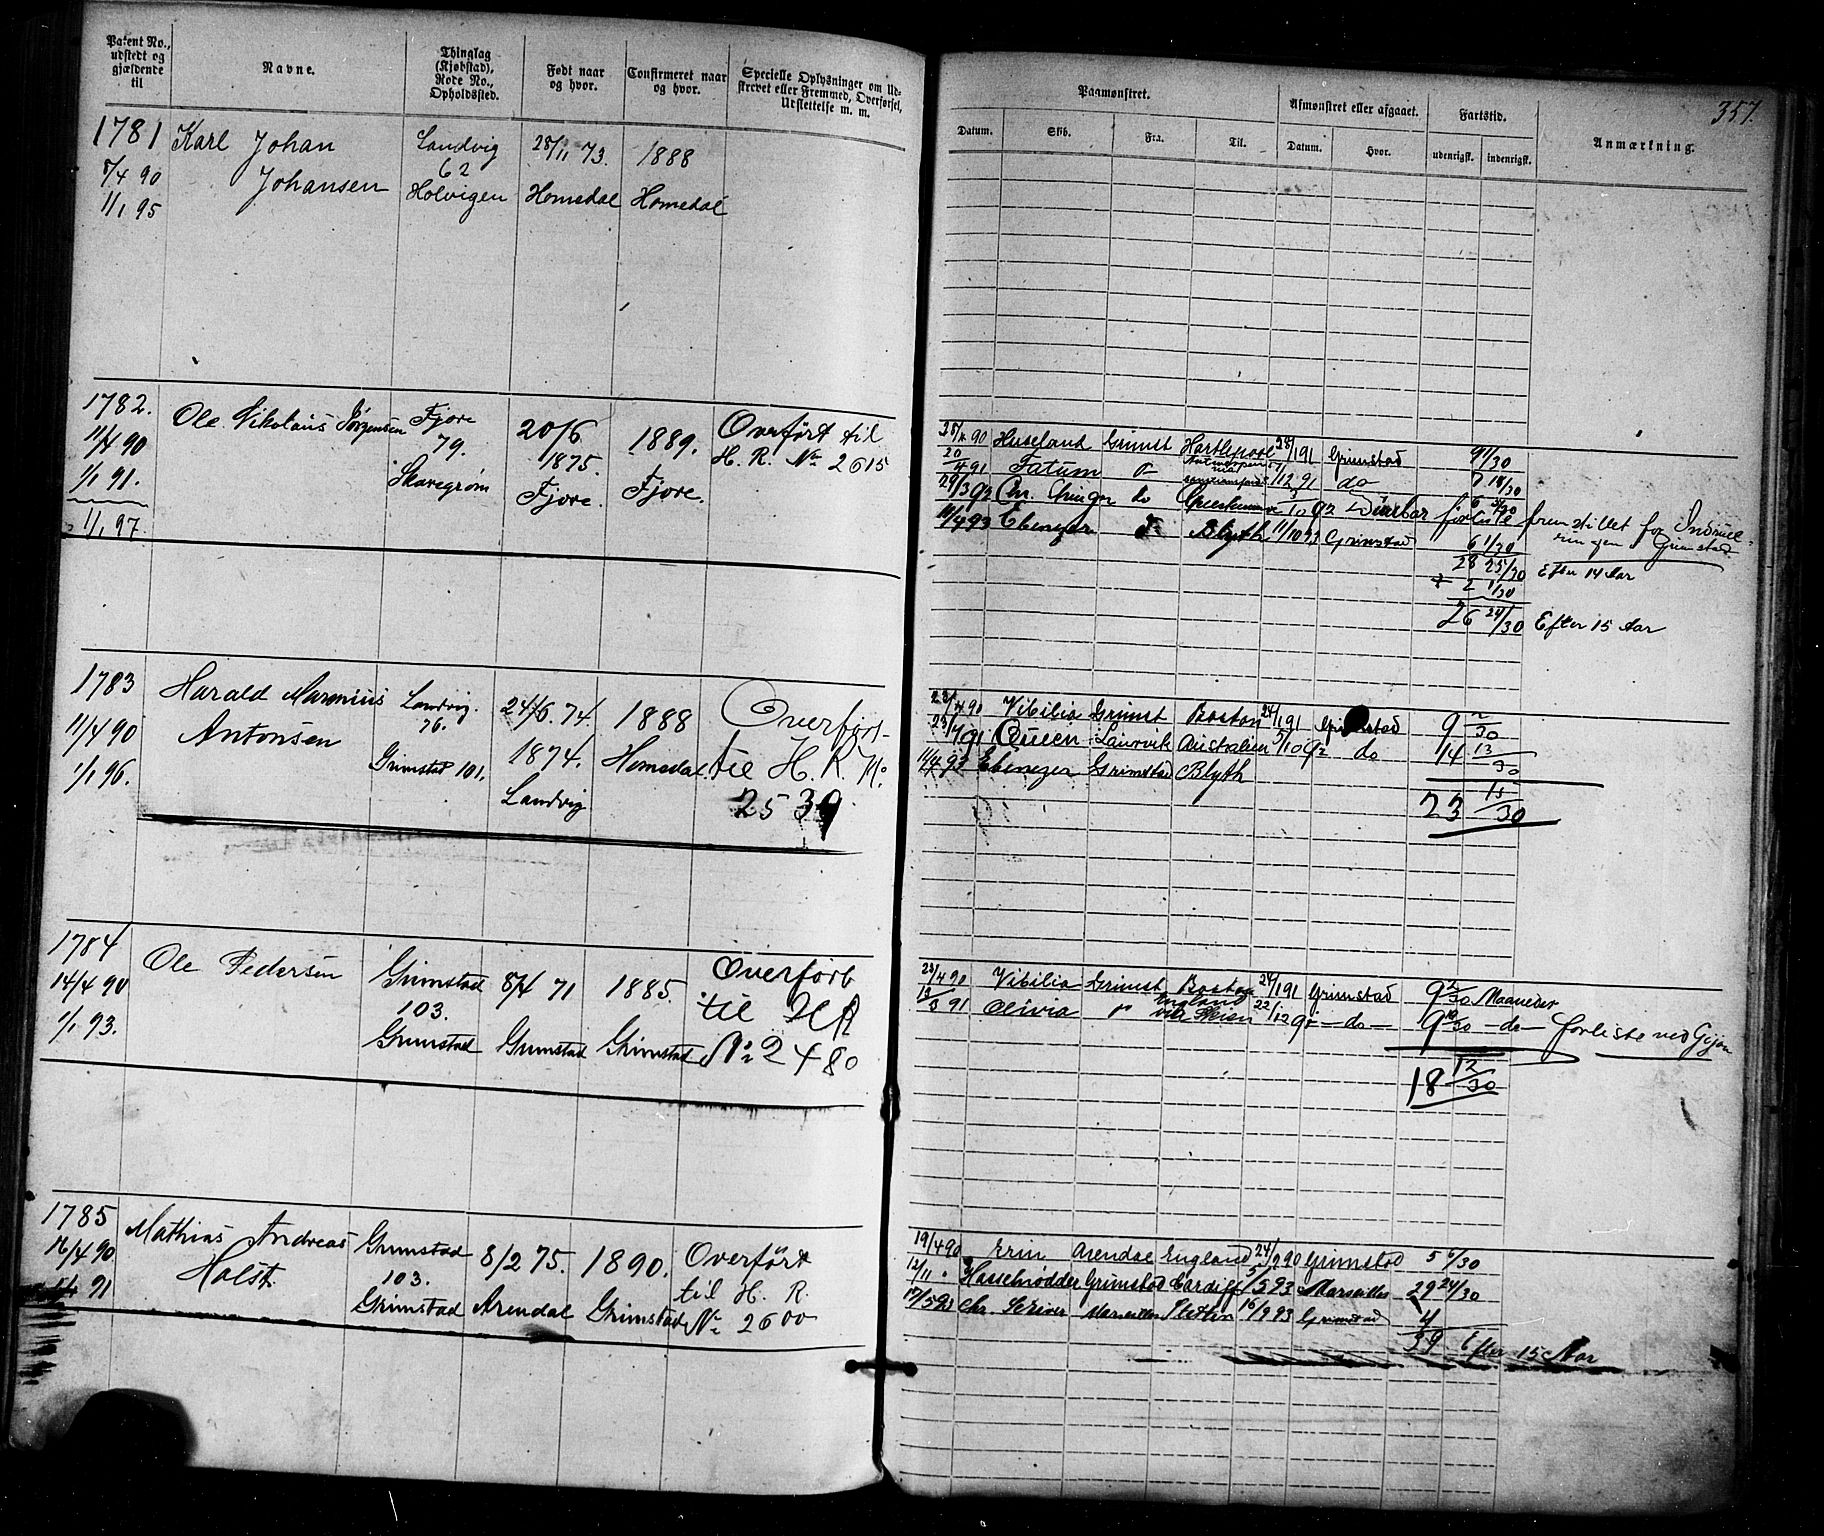 357.
Patent No., udstedt og gjældende til
Navne.
Thinglag (Kjøbstad), Rode No., Opholdssted.
Født naar og hvor.
Confirmeret naar og hvor.
Specielle Oplysninger om Udskrevet eller Fremmed, Overførsel, Udslettelse m. m.
Paamønstret.
Afmønstret eller afgaaet.
Fartstid.
Anmærkning.
Datum. Skib. Fra. Til. Datum. Hvor. udenrigsk. indenrigsk.
1781 Karl Johan Landvig 28/11 73. 1888
8/4 90 Johansen 62
1/1 95 Holvigen Homedal Homedal
1782. Ole Nikolaus Jørgensen Fjære 20/6 1889. Overført til
11/4 90 79. 1875. H. R. No 2615
1/1 91. Skaregrøm Fjøre. Fjøre.
1/1 97.
28/4 90 Huseland Grimst Hartlepool 28/1 91 Grimstad 9 1/30
20/4 91 Fatum 12 91 do 7 18/30
29/3 92 Chr. do 92 Dunbar forliste fremstillet for
11/4 93 Ebenezer Blyth 11/10 93 Grimstad 6 1/30 Grimstad
28 25/30 Efter 14 Aar
2 1/30
26 24/30 Efter 15 Aar
1783 Harald Marenius Landvig. 24/6. 74. 1888 Overført
11/4 90 Antonsen 76. 1874. Homedal til H. R. No
1/1 96. Grimstad 101. Landvig 2539
23/4 90 Vibilia Grimst Boston 24/1 91 Grimstad 9 2/30
23/4 91 Queen Laurvik Australien 5/10 92 do 14 13/30
11/4 93 Ebenezer Grimstad Blyth
23 15/30
1784 Ole Pedersen Grimstad 8/4 71 1885. Overført
14/4 90 103. til HR
1/1 93. Grimstad Grimstad Grimstad No 2480
23/4 90 Vibilia Grimst Boston 24/1 91 Grimstad 9 2/30 Maaneder
91 Olivia England via Skien 22/12 91 - do - 9 10/30 - do - forliste ved Gijon
18 12/30
1785 Mathias Andreas Grimstad 8/2 75. 1890. Overført
16/4 90. Holst. 103. til H. R.
91 Grimstad Arendal Grimstad No 2600
19/4 90 Erin Arendal England 24/9 90 Grimstad 5 6/30
12/11 Hasselnødden Grimstad Cardiff 5/5 93 Marseilles 29 24/30
17/5 93 Chr. Scriver Marseilles Stettin 16/9 93 Grimstad 4
39 Efter 15 Aar